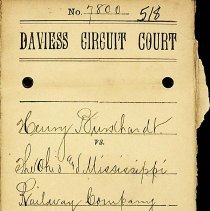 No. 7800 518
DAVIESS CIRCUIT COURT
Henry Burkhardt
vs.
The Ohio & Mississippi
Railway Company